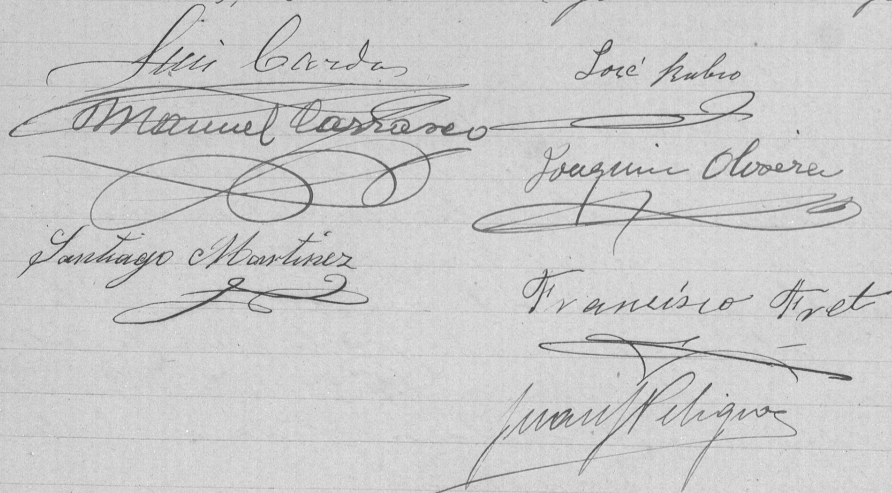 Luis Cardas
Manuel Carrasco
Santiago Martinez
José Rubio
Joaquin Olivera
Francisco Fret
Juan